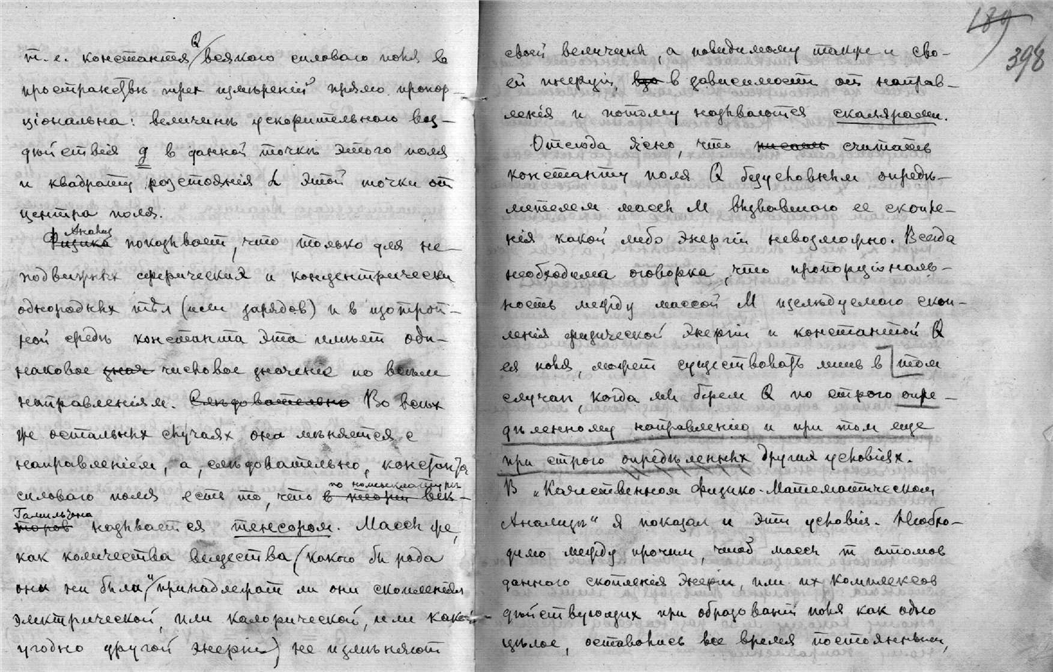 т.е. константа Q всякого силового поля въ
пространствѣ трех измѣренiй прямо пропор-
цiональна: величинѣ ускорительного воз-
дѣйствiя g в данной точкѣ этого поля
и квадрату разстоянiя L этой точки от
центра поля.
Анализ
Физика показывает, что только для не-
подвижных сферических и концентрически
однородных тѣл (или зарядов) и в изотроп-
ной средѣ константа эта имѣет оди-
наковое числовое значенiе по всѣм
направленiям. Слѣдовательно Во всѣх
же остальных случаях она мѣняется с
направленiем, а, слѣдовательно, константа
по номенклатурѣ
силового поля есть то, что в теорiи век-
Гамильтона
торов называется тензором. Массы же,
как количества вещества (какого бы рода
они ни были, принадлежат ли они скопленiям
электрической, или калорической, или какой
угодно другой энергiи), не измѣняют
189
398
своей величины а повидимому также и сво-
ей энергiи, в зависимости от направ-
ленiя и потому называются скалярами.
Отсюда ясно, что считать
константу поля Q безусловным опредѣ-
лителем массы M вызвавшего ее скопле-
нiя какой либо энергiи невозможно. Всегда
необходима оговорка, что пропорцiональ-
ность между массой M изслѣдуемого скоп-
ленiя физической энергiи и константой Q
ея поля, может существовать лишь в том
случаѣ, когда мы берем Q по строго опре-
дѣленному направленiю и при том еще
при строго опредѣленных других условiях.
В „Качественном Физико-Математическом
Анализѣ" я показал и эти условiя. Необхо-
димо между прочим чтоб массы m атомов
данного скопленiя энергiи или их комплексов
дѣйствующих при образованiи поля как одно
цѣлое, оставались все время постоянными,